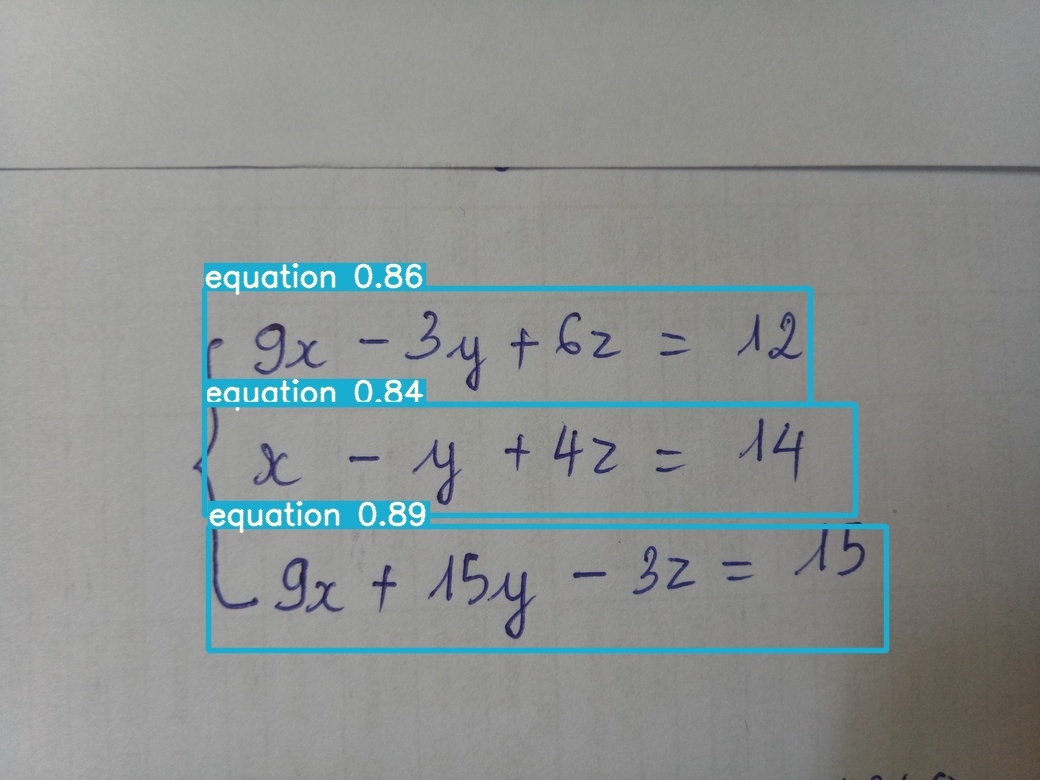 equation 0.86
9x - 3y + 6z = 12
equation 0.84
x - y + 4z = 14
equation 0.89
9x + 15y - 3z = 15